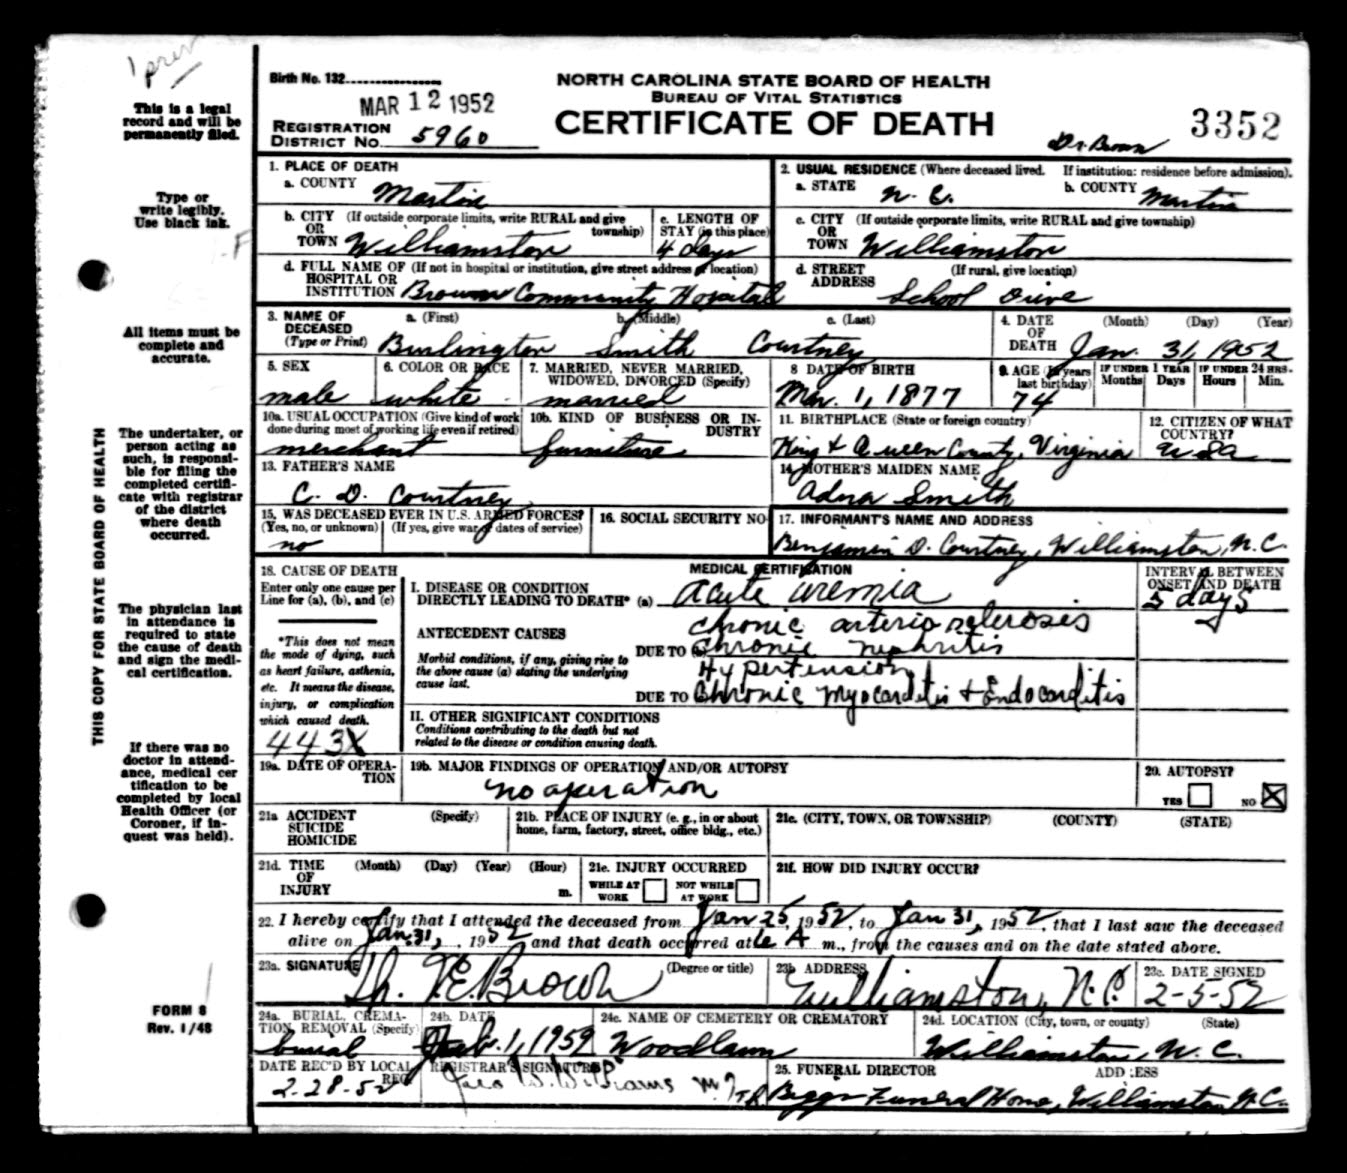 1 prev
Birth No. 132
MAR 12 1952
REGISTRATION
DISTRICT No. 5960
NORTH CAROLINA STATE BOARD OF HEALTH
BUREAU OF VITAL STATISTICS
CERTIFICATE OF DEATH
3352
Dr. Brown
This is a legal
record and will be
permanently filed.
Type or
write legibly.
Use black ink.
All items must be
complete and
accurate.
The undertaker, or
person acting as
such, is responsi-
ble for filing the
completed certifi-
cate with registrar
of the district
where death
occurred.
The physician last
in attendance is
required to state
the cause of death
and sign the medi-
cal certification.
If there was no
doctor in attend-
ance, medical cer
tification to be
completed by local
Health Officer (or
Coroner, if in-
quest was held).
FORM 8
Rev. 1/48
THIS COPY FOR STATE BOARD OF HEALTH
1. PLACE OF DEATH
a. COUNTY Martin
2. USUAL RESIDENCE (Where deceased lived. If institution: residence before admission).
a. STATE N. C. b. COUNTY Martin
b. CITY (If outside corporate limits, write RURAL and give township)
OR
TOWN Williamston
c. LENGTH OF
STAY (in this place)
4 days
c. CITY (If outside corporate limits, write RURAL and give township)
OR
TOWN Williamston
d. FULL NAME OF (If not in hospital or institution, give street address or location)
HOSPITAL OR
INSTITUTION Brown Community Hospital
d. STREET (If rural, give location)
ADDRESS School Drive
3. NAME OF
DECEASED
(Type or Print)
a. (First) b. (Middle) c. (Last)
Burlington Smith Courtney
4. DATE (Month) (Day) (Year)
OF
DEATH Jan. 31, 1952
5. SEX
male
6. COLOR OR RACE
white
7. MARRIED, NEVER MARRIED,
WIDOWED, DIVORCED (Specify)
married
8 DATE OF BIRTH
Mar. 1, 1877
9. AGE (In years
last birthday)
74
IF UNDER 1 YEAR
Months Days
IF UNDER 24 HRS.
Hours Min.
10a. USUAL OCCUPATION (Give kind of work
done during most of working life even if retired)
merchant
10b. KIND OF BUSINESS OR IN-
DUSTRY
furniture
11. BIRTHPLACE (State or foreign country)
King & Queen County, Virginia
12. CITIZEN OF WHAT
COUNTRY?
USA
13. FATHER'S NAME
C. D. Courtney
14. MOTHER'S MAIDEN NAME
Adna Smith
15. WAS DECEASED EVER IN U.S. ARMED FORCES?
(Yes, no, or unknown) (If yes, give war or dates of service)
no
16. SOCIAL SECURITY NO
17. INFORMANT'S NAME AND ADDRESS
Benjamin D. Courtney, Williamston, N.C.
18. CAUSE OF DEATH
Enter only one cause per
Line for (a), (b), and (c)
*This does not mean
the mode of dying, such
as heart failure, asthenia,
etc. It means the disease,
injury, or complication
which caused death.
443X
MEDICAL CERTIFICATION
I. DISEASE OR CONDITION
DIRECTLY LEADING TO DEATH* (a) Acute Uremia
INTERVAL BETWEEN
ONSET AND DEATH
5 days
ANTECEDENT CAUSES
Morbid conditions, if any, giving rise to
the above cause (a) stating the underlying
cause last.
Chronic arteriosclerosis
DUE TO (b) Chronic Nephritis
Hypertension
DUE TO Chronic Myocarditis & Endocarditis
II. OTHER SIGNIFICANT CONDITIONS
Conditions contributing to the death but not
related to the disease or condition causing death.
19a. DATE OF OPERA-
TION
19b. MAJOR FINDINGS OF OPERATION AND/OR AUTOPSY
no operation
20. AUTOPSY?
YES NO X
21a ACCIDENT (Specify)
SUICIDE
HOMICIDE
21b. PLACE OF INJURY (e. g., in or about
home, farm, factory, street, office bldg., etc.)
21c. (CITY, TOWN, OR TOWNSHIP) (COUNTY) (STATE)
21d. TIME (Month) (Day) (Year) (Hour)
OF
INJURY m.
21e. INJURY OCCURRED
WHILE AT WORK NOT WHILE AT WORK
21f. HOW DID INJURY OCCUR?
22. I hereby certify that I attended the deceased from Jan 25, 1952, to Jan 31, 1952, that I last saw the deceased
alive on Jan. 31, 1952 and that death occurred at 6 A m., from the causes and on the date stated above.
23a. SIGNATURE (Degree or title)
V.E. Brown
23b ADDRESS
Williamston, N.C.
23c. DATE SIGNED
2-5-52
24a. BURIAL, CREMA-
TION, REMOVAL (Specify)
burial
24b. DATE
Feb. 1, 1959
24c. NAME OF CEMETERY OR CREMATORY
Woodlawn
24d. LOCATION (City, town, or county) (State)
Williamston, N. C.
DATE REC'D BY LOCAL
REG.
2-28-52
REGISTRAR'S SIGNATURE
25. FUNERAL DIRECTOR ADDRESS
Biggs Funeral Home, Williamston, N.C.